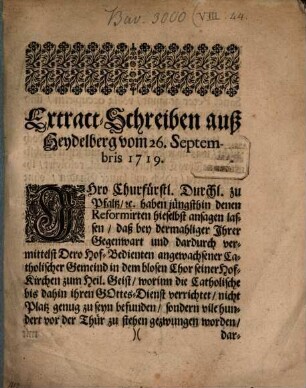 Bav. 3000 (VIII. 44.
Extract-Schreiben auß
Heydelberg vom 26. Septem-
bris 1719.
IHro Churfürstl. Durchl. zu
Pfaltz/ ꝛc. haben jüngsthin denen
Reformirten hieselbst ansagen las-
sen / daß bey dermahliger Ihrer
Gegenwart und dardurch ver-
mittelst Dero Hof-Bedienten angewachsener Ca-
tholischer Gemeind in dem blosen Chor seiner Hof-
Kirchen zum Heil. Geist / worinn die Catholische
bis dahin ihren GOttes-Dienst verrichtet / nicht
Platz genug zu seyn befunden / sondern vile hun-
dert vor der Thür zu stehen gezwungen worden /
)( dar-